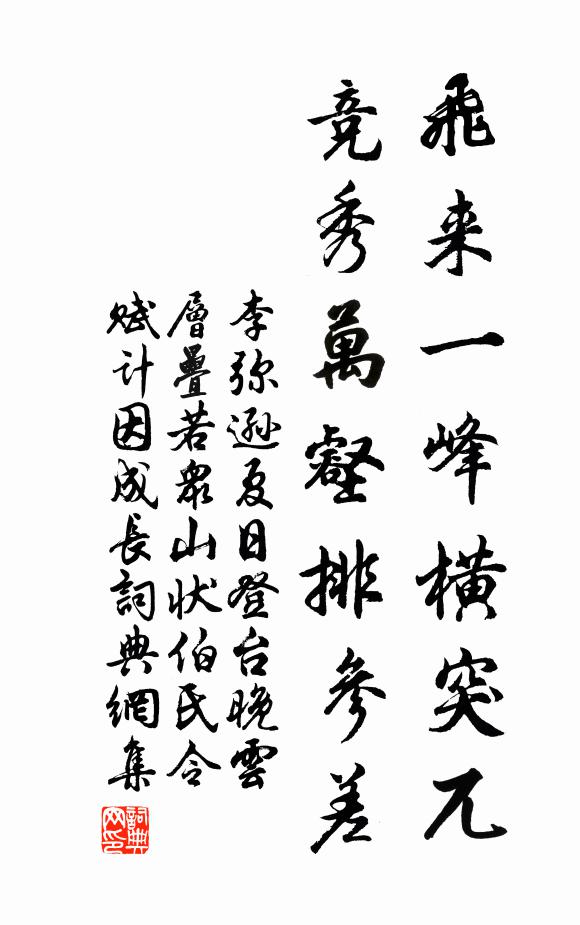 飛来一峰橫突兀
竞秀萬壑排參差
李弥遜夏日登台晚雲
層疊若衆山状伯民令
賦計因成長詞典網集
詞典网印